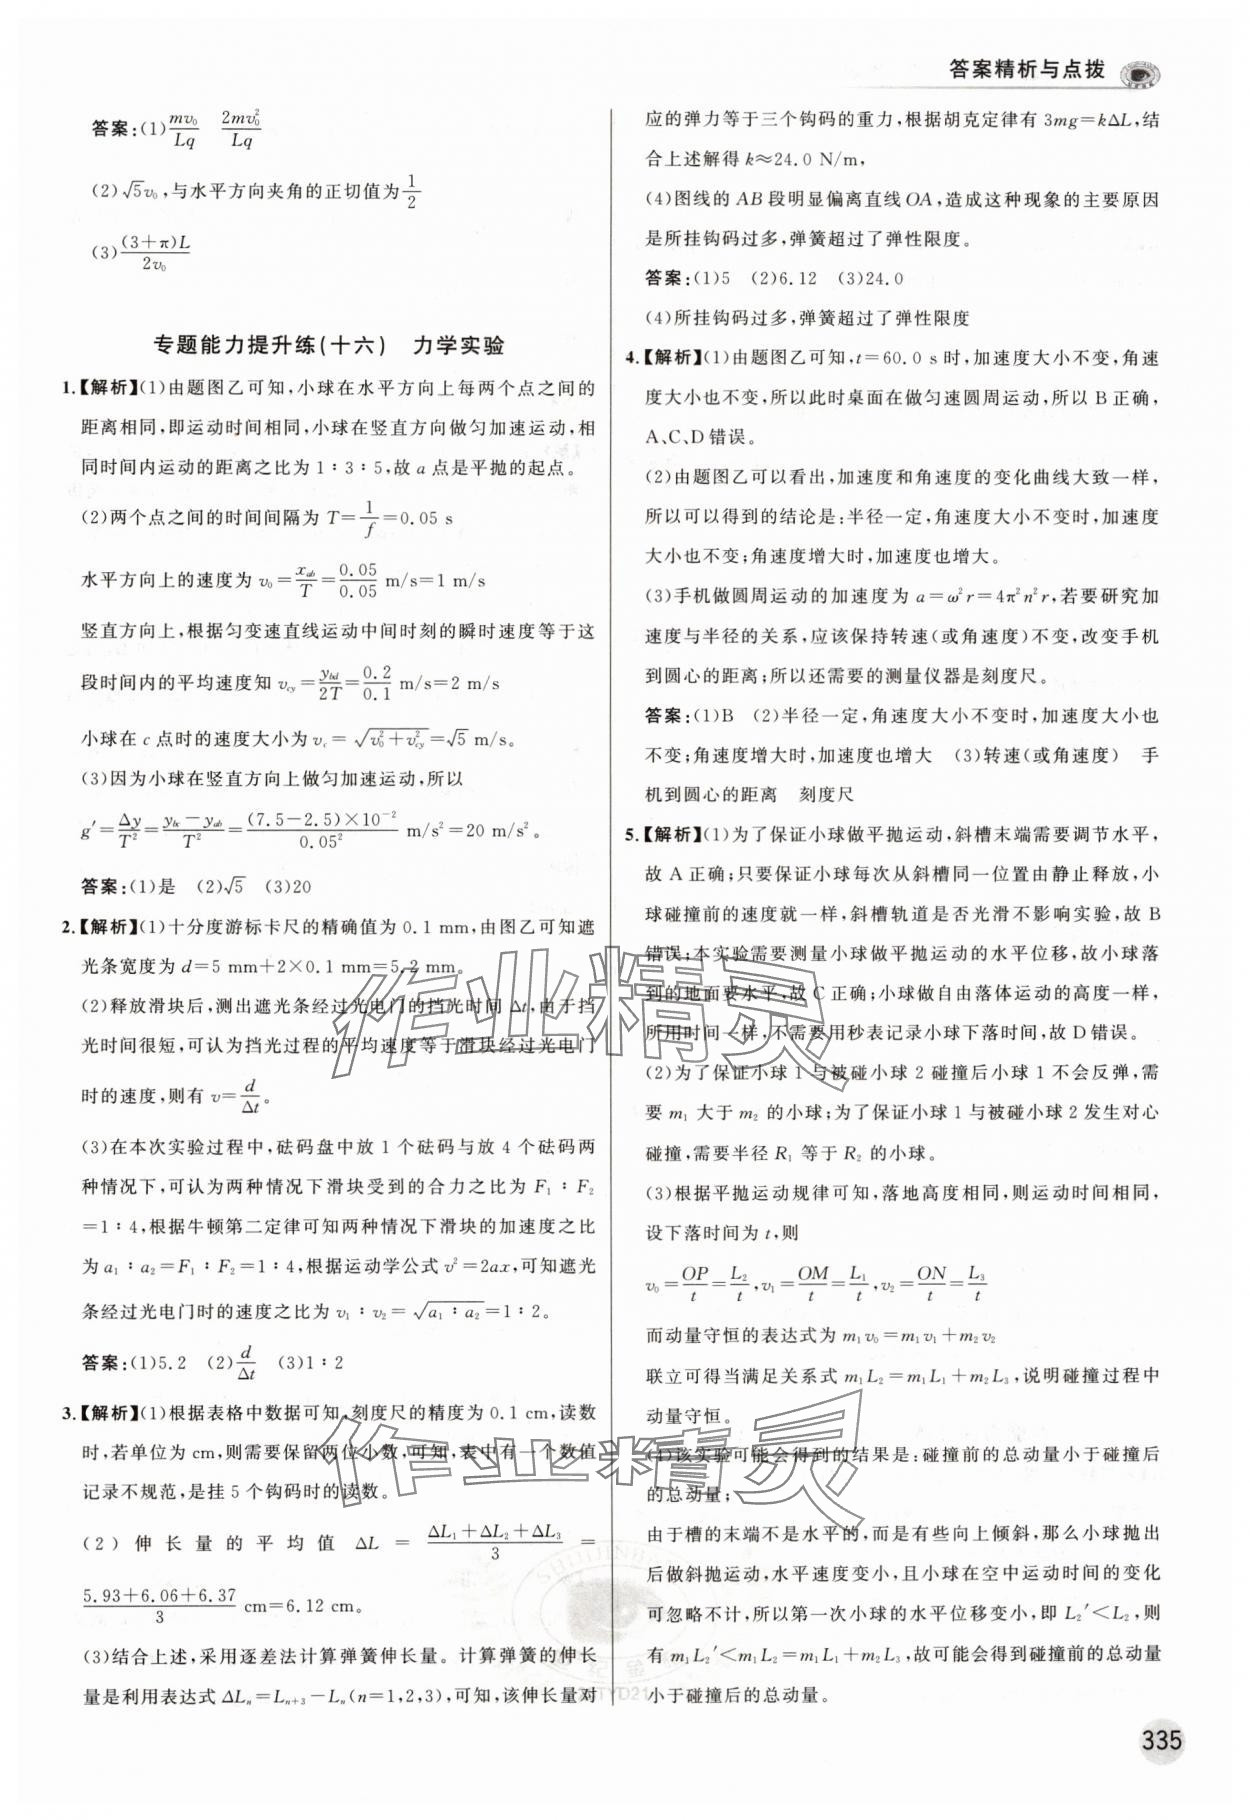 答案精析与点拨
答案:(1)mv₀/Lq　2mv₀²/Lq
(2)√5v₀,与水平方向夹角的正切值为1/2
(3)(3+π)L/2v₀
专题能力提升练(十六)　力学实验
1.【解析】(1)由题图乙可知,小球在水平方向上每两个点之间的
距离相同,即运动时间相同,小球在竖直方向做匀加速运动,相
同时间内运动的距离之比为1∶3∶5,故a点是平抛的起点。
(2)两个点之间的时间间隔为T=1/f=0.05 s
水平方向上的速度为v₀=x_ab/T=0.05/0.05 m/s=1 m/s
竖直方向上,根据匀变速直线运动中间时刻的瞬时速度等于这
段时间内的平均速度知v_cy=y_bd/2T=0.2/0.1 m/s=2 m/s
小球在c点时的速度大小为v_c=√(v₀²+v_cy²)=√5 m/s。
(3)因为小球在竖直方向上做匀加速运动,所以
g′=Δy/T²=(y_bc-y_ab)/T²=(7.5-2.5)×10⁻²/0.05² m/s²=20 m/s²。
答案:(1)是　(2)√5　(3)20
2.【解析】(1)十分度游标卡尺的精确值为0.1 mm,由图乙可知遮
光条宽度为d=5 mm+2×0.1 mm=5.2 mm。
(2)释放滑块后,测出遮光条经过光电门的挡光时间Δt,由于挡
光时间很短,可认为挡光过程的平均速度等于滑块经过光电门
时的速度,则有v=d/Δt。
(3)在本次实验过程中,砝码盘中放1个砝码与放4个砝码两
种情况下,可认为两种情况下滑块受到的合力之比为F₁∶F₂
=1∶4,根据牛顿第二定律可知两种情况下滑块的加速度之比
为a₁∶a₂=F₁∶F₂=1∶4,根据运动学公式v²=2ax,可知遮光
条经过光电门时的速度之比为v₁∶v₂=√(a₁∶a₂)=1∶2。
答案:(1)5.2　(2)d/Δt　(3)1∶2
3.【解析】(1)根据表格中数据可知,刻度尺的精度为0.1 cm,读数
时,若单位为cm,则需要保留两位小数,可知,表中有一个数值
记录不规范,是挂5个钩码时的读数。
(2)伸长量的平均值ΔL=(ΔL₁+ΔL₂+ΔL₃)/3=
(5.93+6.06+6.37)/3 cm=6.12 cm。
(3)结合上述,采用逐差法计算弹簧伸长量。计算弹簧的伸长
量是利用表达式ΔLₙ=Lₙ₊₃-Lₙ(n=1,2,3),可知,该伸长量对
应的弹力等于三个钩码的重力,根据胡克定律有3mg=kΔL,结
合上述解得k≈24.0 N/m,
(4)图线的AB段明显偏离直线OA,造成这种现象的主要原因
是所挂钩码过多,弹簧超过了弹性限度。
答案:(1)5　(2)6.12　(3)24.0
(4)所挂钩码过多,弹簧超过了弹性限度
4.【解析】(1)由题图乙可知,t=60.0 s时,加速度大小不变,角速
度大小也不变,所以此时桌面在做匀速圆周运动,所以B正确,
A、C、D错误。
(2)由题图乙可以看出,加速度和角速度的变化曲线大致一样,
所以可以得到的结论是:半径一定,角速度大小不变时,加速度
大小也不变;角速度增大时,加速度也增大。
(3)手机做圆周运动的加速度为a=ω²r=4π²n²r,若要研究加
速度与半径的关系,应该保持转速(或角速度)不变,改变手机
到圆心的距离;所以还需要的测量仪器是刻度尺。
答案:(1)B　(2)半径一定,角速度大小不变时,加速度大小也
不变;角速度增大时,加速度也增大　(3)转速(或角速度)　手
机到圆心的距离　刻度尺
5.【解析】(1)为了保证小球做平抛运动,斜槽末端需要调节水平,
故A正确;只要保证小球每次从斜槽同一位置由静止释放,小
球碰撞前的速度就一样,斜槽轨道是否光滑不影响实验,故B
错误;本实验需要测量小球做平抛运动的水平位移,故小球落
到的地面要水平,故C正确;小球做自由落体运动的高度一样,
所用时间一样,不需要用秒表记录小球下落时间,故D错误。
(2)为了保证小球1与被碰小球2碰撞后小球1不会反弹,需
要m₁大于m₂的小球;为了保证小球1与被碰小球2发生对心
碰撞,需要半径R₁等于R₂的小球。
(3)根据平抛运动规律可知,落地高度相同,则运动时间相同,
设下落时间为t,则
v₀=OP/t=L₂/t,v₁=OM/t=L₁/t,v₂=ON/t=L₃/t
而动量守恒的表达式为m₁v₀=m₁v₁+m₂v₂
联立可得当满足关系式m₁L₂=m₁L₁+m₂L₃,说明碰撞过程中
动量守恒。
(4)该实验可能会得到的结果是:碰撞前的总动量小于碰撞后
的总动量;
由于槽的末端不是水平的,而是有些向上倾斜,那么小球抛出
后做斜抛运动,水平速度变小,且小球在空中运动时间的变化
可忽略不计,所以第一次小球的水平位移变小,即L₂′<L₂,则
有m₁L₂′<m₁L₂=m₁L₁+m₂L₃,故可能会得到碰撞前的总动量
小于碰撞后的总动量。
作业精灵
作业精灵
335